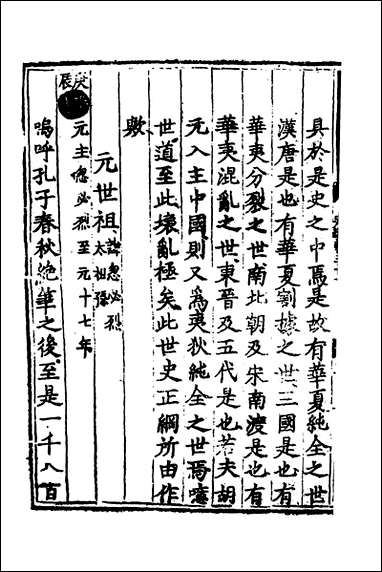 具於是史之中焉是故有華夏純全之世
漢唐是也有華夏割據之世三國是也有
華夷分裂之世南北朝及宋南渡是也有
華夷混亂之世東晉及五代是也若夫胡
元入主中國則又為夷狄純全之世焉噫
世道至此壞亂極矣此世史正綱所由作
歟
元世祖 諱忽必烈太祖孫
庚辰
元主忽必烈至元十七年
嗚呼孔子春秋絕筆之後至是一千八百